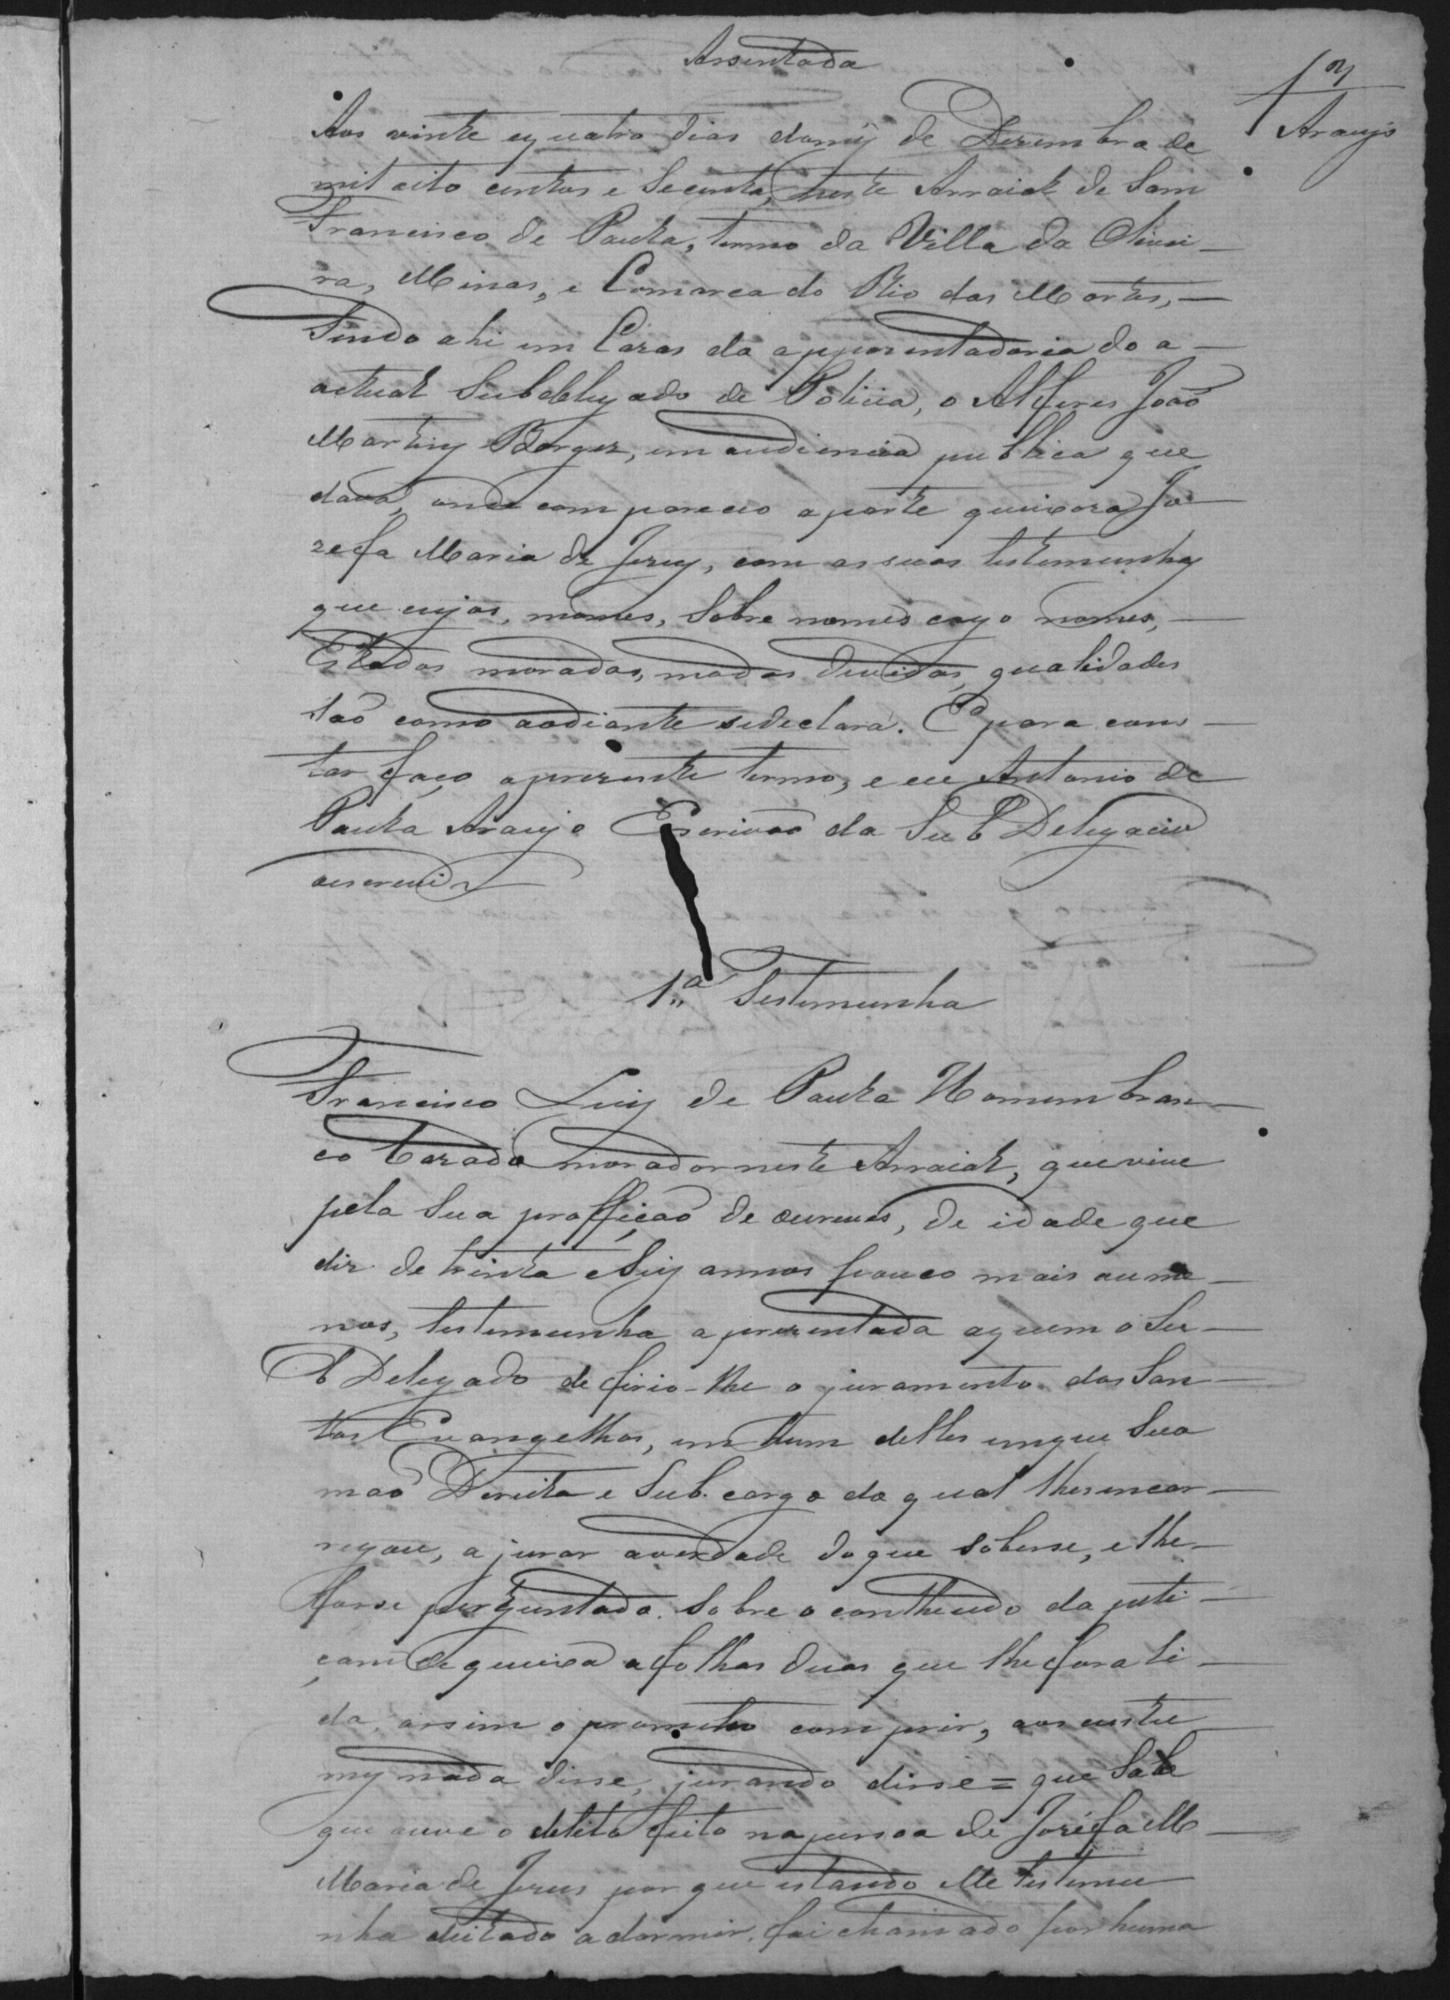 Assentada
13
Araujo
Aos vinte e quatro dias do mez de Dezembro de
mil oito centos e Secenta, neste Arraial de Sam
Francisco de Paula, termo da Villa da Olivei-
ra, Minas, e Comarca do Rio das Mortes,-
Sendo ahi em Cazas da apposentadoria do a-
actual Subdelegado de Policia, o Alferes João
Martins Borges, em audiencia publica que
dava, onde compareceo a parte queixoza Jo-
zefa Maria de Jezus, com as suas testemunhas
que cujos, nomes, Sobre nomes cogo nomes,-
Estados moradas, modos de vidas, qualidades
são como aodiante sedeclara. E para cons-
tar faço aprezente termo, e eu Antonio de
Paula Araujo Escrivão da Sub Delegacia
aescrevi
1.ª Testemunha
Francisco Luiz de Paula Homem bran-
co Cazado morador neste Arraial, que vive
pela Sua proffição de ourives, de idade que
diz de trinta e seis annos pouco mais ou me-
nos, testemunha aprezentada aquem o Su-
b Delegado deferio-lhe o juramento dos San-
tos Evangelhos, em hum delles em que Sua
mão Direita e Sub cargo do qual lhe encar-
regou, a jurar averdade do que Sobesse, e lhe-
fosse perguntado. Sobre o contheudo da peti-
çam de queixa a folhas duas que lhe fora li-
da, assim o prometeo comprir, aos custu
mes nada disse, jurando disse = que Sabe
que ouve o delito feito na pessoa de Jozéfa M
Maria de Jezus por que estando elle testemu
nha deitado a dormir. foi chamado por huma